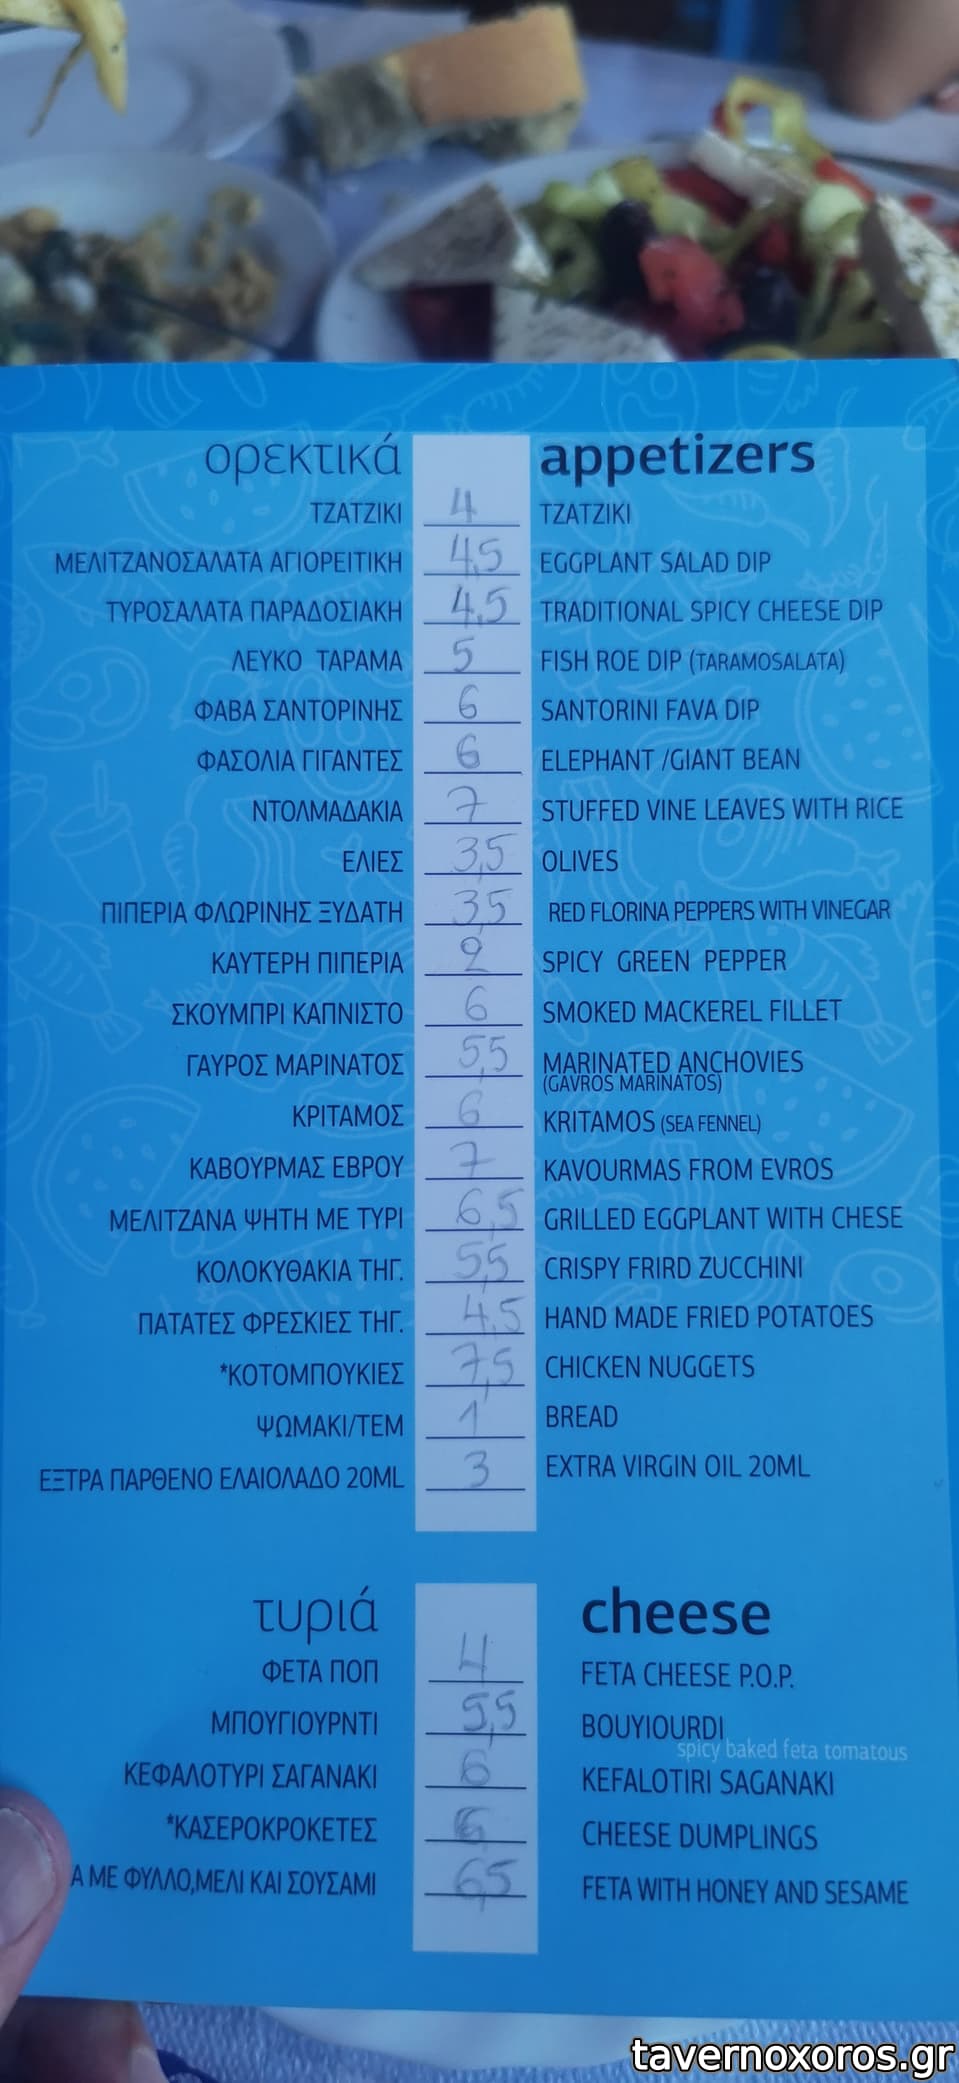 ορεκτικά appetizers
ΤΖΑΤΖΙΚΙ 4 TZATZIKI
ΜΕΛΙΤΖΑΝΟΣΑΛΑΤΑ ΑΓΙΟΡΕΙΤΙΚΗ 4,5 EGGPLANT SALAD DIP
ΤΥΡΟΣΑΛΑΤΑ ΠΑΡΑΔΟΣΙΑΚΗ 4,5 TRADITIONAL SPICY CHEESE DIP
ΛΕΥΚΟ ΤΑΡΑΜΑ 5 FISH ROE DIP (TARAMOSALATA)
ΦΑΒΑ ΣΑΝΤΟΡΙΝΗΣ 6 SANTORINI FAVA DIP
ΦΑΣΟΛΙΑ ΓΙΓΑΝΤΕΣ 6 ELEPHANT /GIANT BEAN
ΝΤΟΛΜΑΔΑΚΙΑ 7 STUFFED VINE LEAVES WITH RICE
ΕΛΙΕΣ 3,5 OLIVES
ΠΙΠΕΡΙΑ ΦΛΩΡΙΝΗΣ ΞΥΔΑΤΗ 3,5 RED FLORINA PEPPERS WITH VINEGAR
ΚΑΥΤΕΡΗ ΠΙΠΕΡΙΑ 2 SPICY GREEN PEPPER
ΣΚΟΥΜΠΡΙ ΚΑΠΝΙΣΤΟ 6 SMOKED MACKEREL FILLET
ΓΑΥΡΟΣ ΜΑΡΙΝΑΤΟΣ 5,5 MARINATED ANCHOVIES
(GAVROS MARINATOS)
ΚΡΙΤΑΜΟΣ 6 KRITAMOS (SEA FENNEL)
ΚΑΒΟΥΡΜΑΣ ΕΒΡΟΥ 7 KAVOURMAS FROM EVROS
ΜΕΛΙΤΖΑΝΑ ΨΗΤΗ ΜΕ ΤΥΡΙ 6,5 GRILLED EGGPLANT WITH CHESE
ΚΟΛΟΚΥΘΑΚΙΑ ΤΗΓ. 5,5 CRISPY FRIRD ZUCCHINI
ΠΑΤΑΤΕΣ ΦΡΕΣΚΙΕΣ ΤΗΓ. 4,5 HAND MADE FRIED POTATOES
*ΚΟΤΟΜΠΟΥΚΙΕΣ 7,5 CHICKEN NUGGETS
ΨΩΜΑΚΙ/ΤΕΜ 1 BREAD
ΕΞΤΡΑ ΠΑΡΘΕΝΟ ΕΛΑΙΟΛΑΔΟ 20ML 3 EXTRA VIRGIN OIL 20ML
τυριά cheese
ΦΕΤΑ ΠΟΠ 4 FETA CHEESE P.O.P.
ΜΠΟΥΓΙΟΥΡΝΤΙ 5,5 BOUYIOURDI
spicy baked feta tomatous
ΚΕΦΑΛΟΤΥΡΙ ΣΑΓΑΝΑΚΙ 6 KEFALOTIRI SAGANAKI
*ΚΑΣΕΡΟΚΡΟΚΕΤΕΣ 6 CHEESE DUMPLINGS
Α ΜΕ ΦΥΛΛΟ,ΜΕΛΙ ΚΑΙ ΣΟΥΣΑΜΙ 6,5 FETA WITH HONEY AND SESAME
tavernoxoros.gr